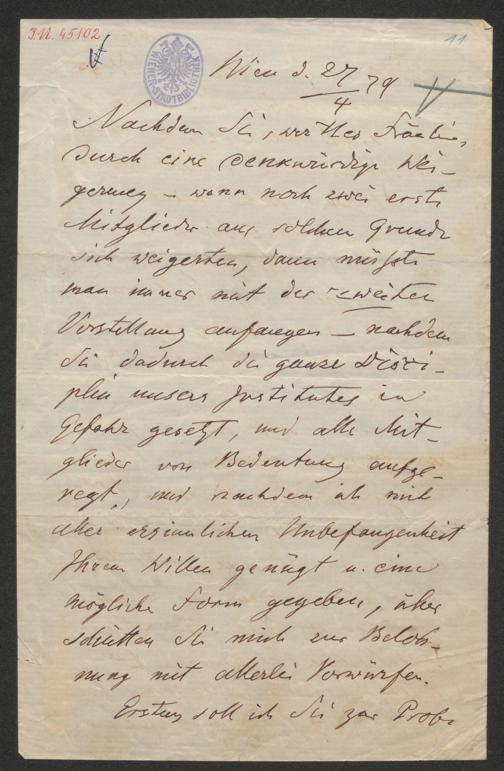 I.N. 45102
11
WIENER STADTBIBLIOTHEK
Wien d. 27/4 79
Nachdem Sie, werthes Fräulein,
durch eine denkwürdige Wei-
gerung – wenn noch zwei erste
Mitglieder aus solchem Grunde
sich weigerten, dann müßte
man immer mit der zweiten
Vorstellung anfangen – nachdem
Sie dadurch die ganze Disci-
plin unsers Institutes in
Gefahr gesetzt, und alle Mit-
glieder von Bedeutung aufge-
regt, und nachdem ich mit
aller ersinnlichen Unbefangenheit
Ihrem Willen genügt u. eine
mögliche Form gegeben, über
schütten Sie mich zur Beloh-
nung mit allerlei Vorwürfen.
Erstens soll ich Sie zur Probe